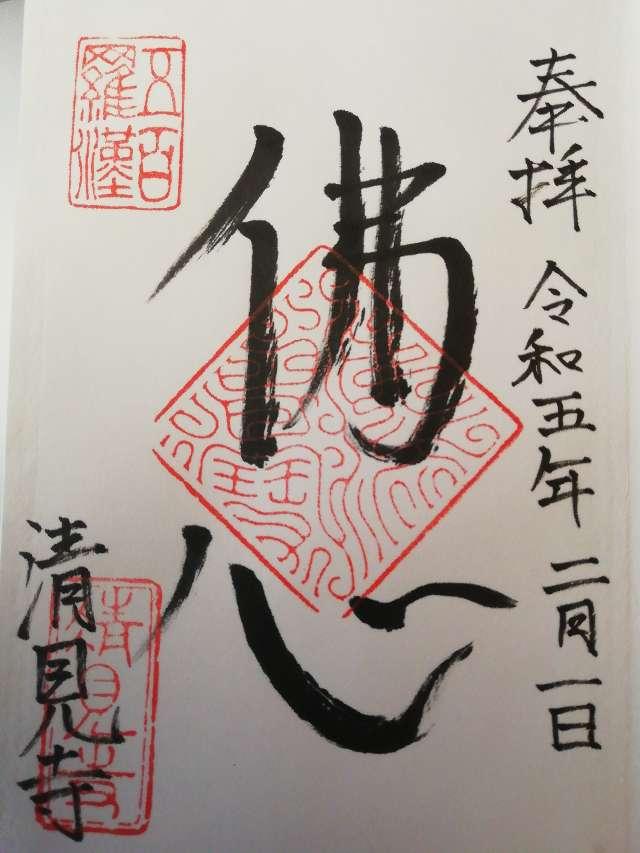 奉拝 令和五年二月一日
佛心
清見寺
五百羅漢
清見寺